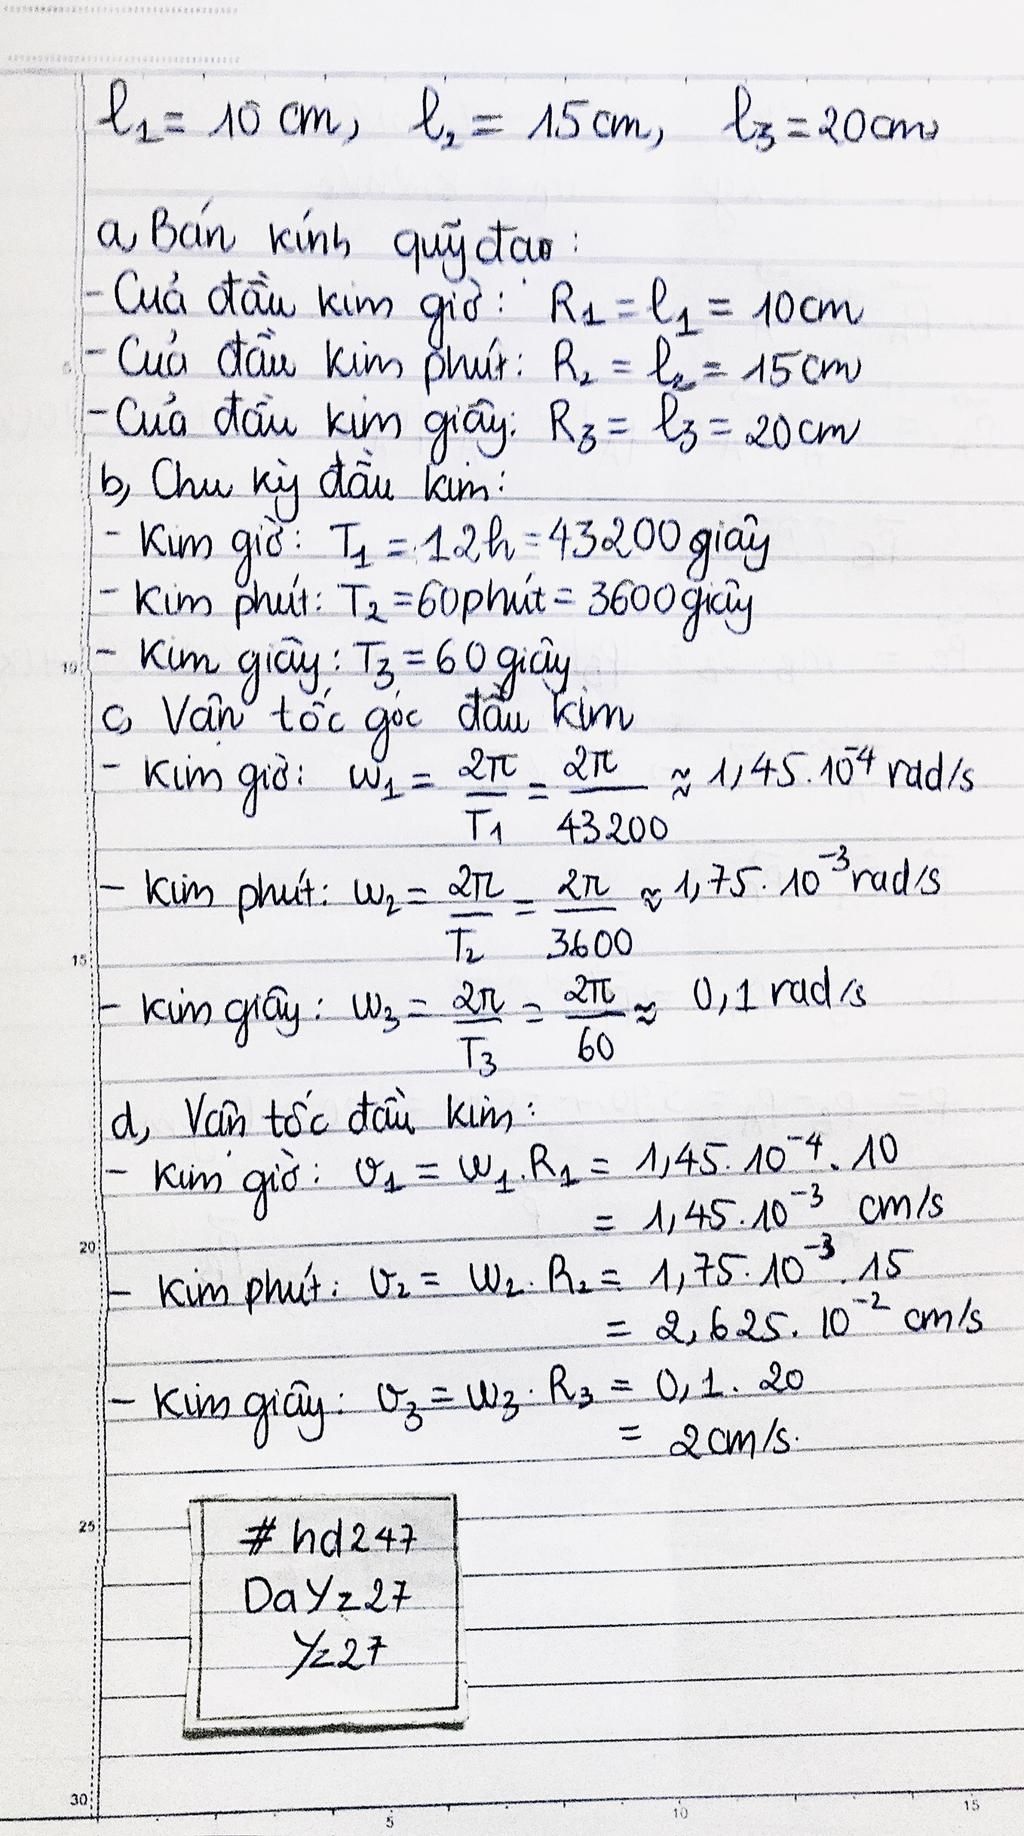 l₁ = 10 cm, l₂ = 15 cm, l₃ = 20 cm
a, Bán kính quỹ đạo:
- Của đầu kim giờ: R₁ = l₁ = 10 cm
- Của đầu kim phút: R₂ = l₂ = 15 cm
- Của đầu kim giây: R₃ = l₃ = 20 cm
b, Chu kỳ đầu kim:
- Kim giờ: T₁ = 12h = 43200 giây
- Kim phút: T₂ = 60 phút = 3600 giây
- Kim giây: T₃ = 60 giây
10
c, Vận tốc góc đầu kim
- Kim giờ: w₁ = 2π/T₁ = 2π/43200 ≈ 1,45.10⁻⁴ rad/s
- Kim phút: w₂ = 2π/T₂ = 2π/3600 ≈ 1,75.10⁻³ rad/s
15
- Kim giây: w₃ = 2π/T₃ = 2π/60 ≈ 0,1 rad/s
d, Vận tốc đầu kim:
- Kim giờ: v₁ = w₁.R₁ = 1,45.10⁻⁴.10
= 1,45.10⁻³ cm/s
20
- Kim phút: v₂ = w₂.R₂ = 1,75.10⁻³.15
= 2,625.10⁻² cm/s
- Kim giây: v₃ = w₃.R₃ = 0,1.20
= 2 cm/s.
25
# hd247
DaYz27
Yz27
30
5 10 15